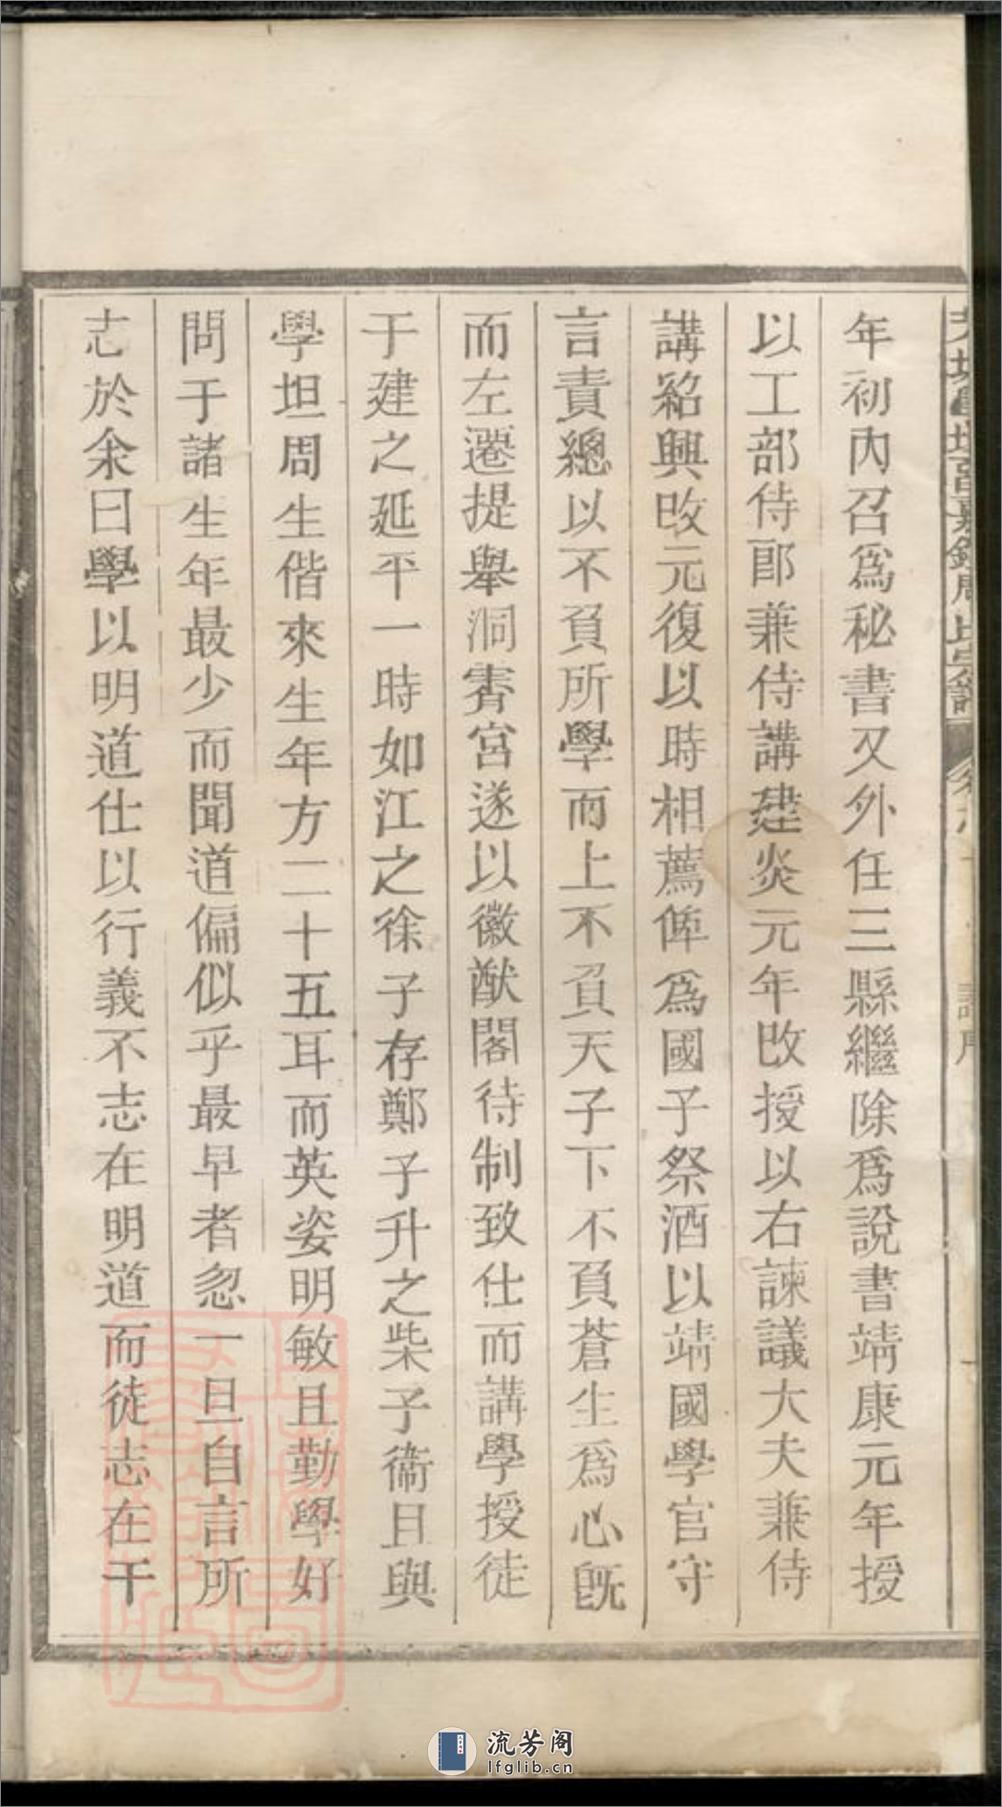 年初內召爲秘書又外任三縣繼除爲說書靖康元年授
以工部侍郎兼侍講建炎元年改授以右諫議大夫兼侍
講紹興改元復以時相薦俾爲國子祭酒以靖國學官守
言責總以不負所學而上不負天子下不負蒼生爲心旣
而左遷提舉洞霄宮遂以徽猷閣待制致仕而講學授徒
于建之延平一時如江之徐子存鄭子升之柴子衞且與
學坦周生偕來生年方二十五耳而英姿明敏且勤學好
問于諸生年最少而聞道偏似乎最早者忽一旦自言所
志於余曰學以明道仕以行義不志在明道而徒志在干
流芳阁
lfglib.cn